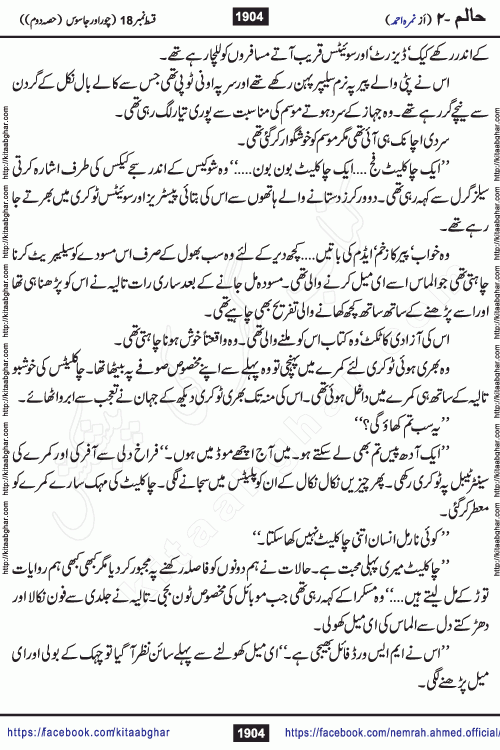 حالم -۲ (از نمرہ احمد) 1904 قسط نمبر 18 (چور اور جاسوس (حصہ دوم))
کے اندر رکھے کیک‘ ڈیزرٹ‘ اور سوئیٹس قریب آتے مسافروں کو للچا رہے تھے۔
اس نے پٹی والے پیر پہ نرم سلیپر پہن رکھے تھے اور سر پہ اونی ٹوپی تھی جس سے کالے بال نکل کے گردن
سے نیچے گر رہے تھے۔ وہ جہاز کے سرد ہوتے موسم کی مناسبت سے پوری تیار لگ رہی تھی۔
سردی اچانک ہی آئی تھی مگر موسم کو خوشگوار کر گئی تھی۔
’’ایک چاکلیٹ فج .... ایک چاکلیٹ بون بون.....‘‘ وہ شوکیس کے اندر سجے کیکس کی طرف اشارہ کرتی
سیلز گرل سے کہہ رہی تھی۔ دو ورکرز دستانے والے ہاتھوں سے اس کی بتائی پیسٹریز اور سوئیٹس ٹوکری میں بھرتے جا
رہے تھے۔
وہ خواب‘ پیر کا زخم‘ ایڈم کی باتیں.... کچھ دیر کے لئے وہ سب بھول کے صرف اس مسودے کو سیلیبریٹ کرنا
چاہتی تھی جو الماس اسے ای میل کرنے والی تھی۔ مسودہ مل جانے کے بعد ساری رات تالیہ نے اس کو پڑھنا ہی تھا
اور اسے پڑھنے کے ساتھ ساتھ کچھ کھانے والی تفریح بھی چاہیے تھی۔
اس کی آزادی کا ٹکٹ‘ وہ کتاب اس کو ملنے والی تھی۔ وہ واقعتاً خوش ہونا چاہتی تھی۔
وہ بھری ہوئی ٹوکری لئے کمرے میں پہنچی تو وہ پہلے سے اپنے مخصوص صوفے پہ بیٹھا تھا۔ چاکلیٹس کی خوشبو
تالیہ کے ساتھ ہی کمرے میں داخل ہوئی تھی۔ اس کی منہ تک بھری ٹوکری دیکھ کے جہان نے تعجب سے ابرو اٹھائے۔
’’یہ سب تم کھاؤ گی؟‘‘
’’ایک آدھ پیس تم بھی لے سکتے ہو۔ میں آج اچھے موڈ میں ہوں۔‘‘ فراخ دلی سے آفر کی اور کمرے کی
سینٹر ٹیبل پہ ٹوکری رکھی۔ پھر چیزیں نکال نکال کے ان کو پلیٹس میں سجانے لگی۔ چاکلیٹ کی مہک سارے کمرے کو
معطر کر گئی۔
’’کوئی نارمل انسان اتنی چاکلیٹ نہیں کھا سکتا۔‘‘
’’چاکلیٹ میری پہلی محبت ہے۔ حالات نے ہم دونوں کو فاصلہ رکھنے پہ مجبور کر دیا مگر کبھی کبھی ہم روایات
توڑ کے مل لیتے ہیں....‘‘ وہ مسکرا کے کہہ رہی تھی جب موبائل کی مخصوص ٹون بجی۔ تالیہ نے جلدی سے فون نکالا اور
دھڑکتے دل سے الماس کی ای میل کھولی۔
’’اس نے ایم ایس ورڈ فائل بھیجی ہے۔‘‘ ای میل کھولنے سے پہلے سائن نظر آ گیا تو چہک کے بولی اور ای
میل پڑھنے لگی۔
https://facebook.com/kitaabghar 1904 https://facebook.com/nemrah.ahmed.official/
http://kitaabghar.com http://kitaabghar.com http://kitaabghar.com http://kitaabghar.com
http://kitaabghar.com http://kitaabghar.com http://kitaabghar.com http://kitaabghar.com